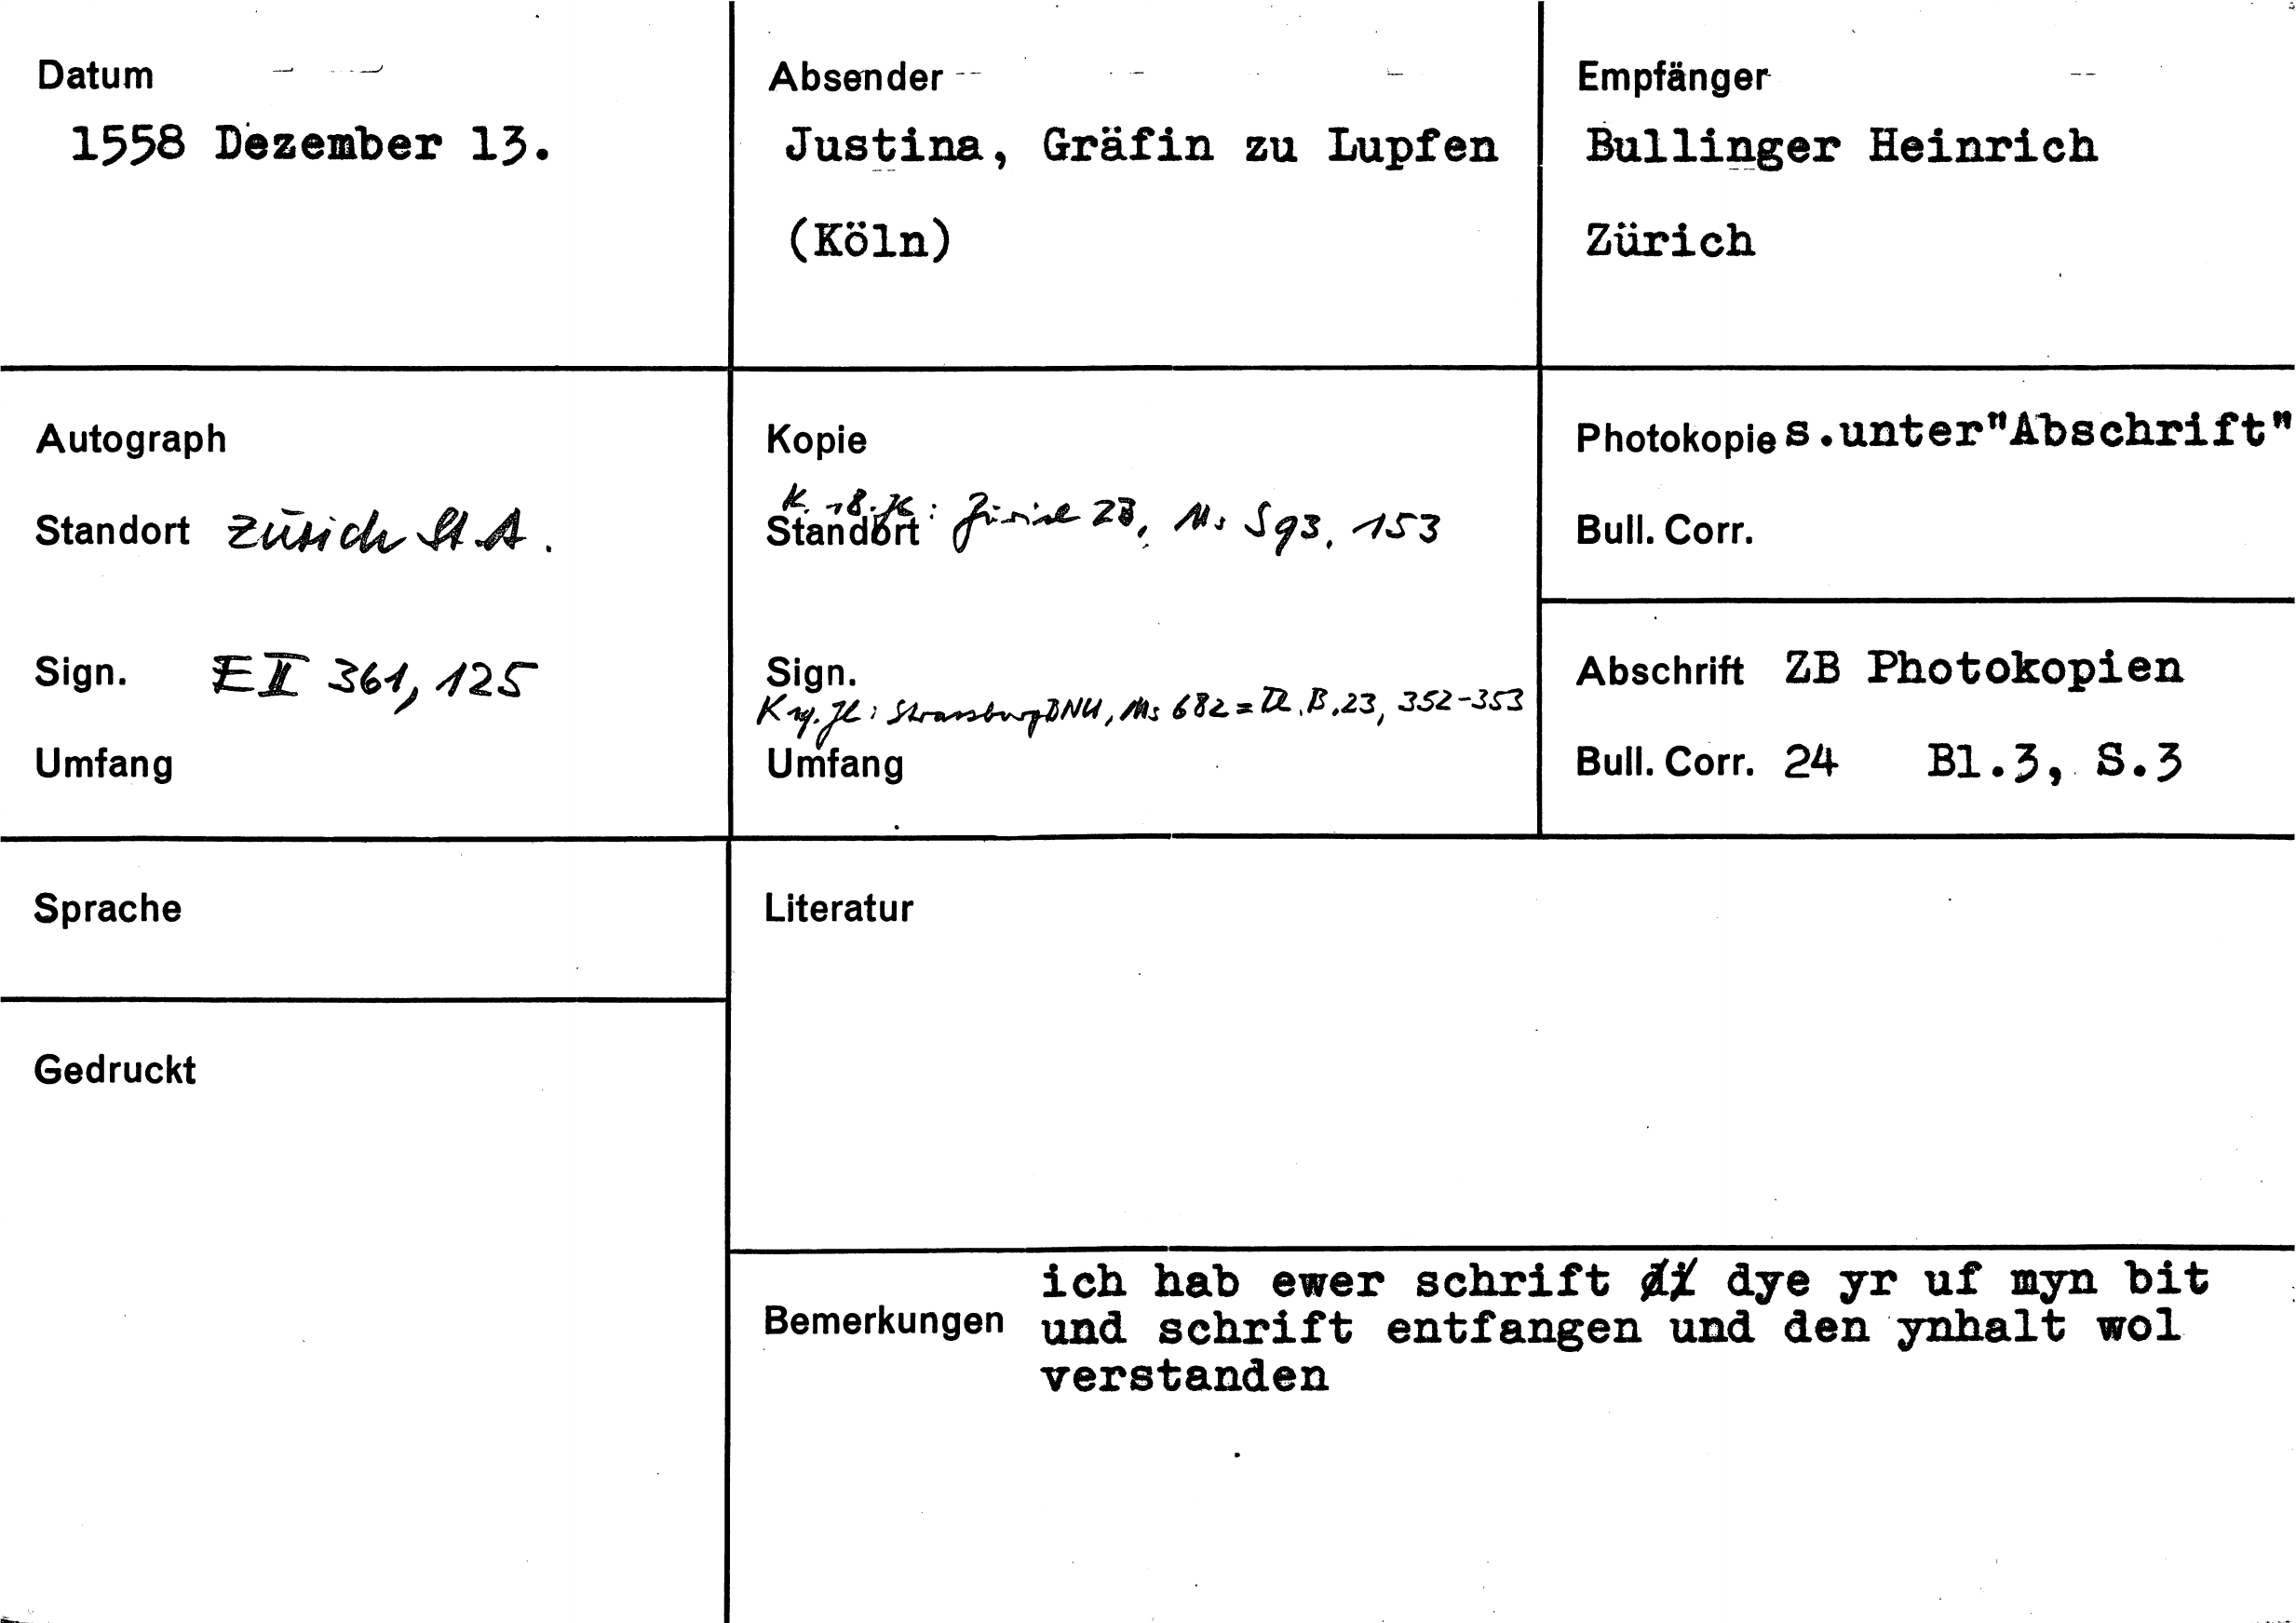 Datum
1558 Dezember 13.
Absender
Justina, Gräfin zu Lupfen
(Köln)
Empfänger
Bullinger Heinrich
Zürich
Autograph
Standort Zürich St A.
Sign. E II 361, 125
Umfang
Kopie
K. 18. Jh: Zürich ZB, Ms S 93, 153
Standort
Sign.
K 19. Jh: Strassburg BNU, Ms 682 = B. 23, 352-353
Umfang
Photokopie s.unter"Abschrift"
Bull. Corr.
Abschrift ZB Photokopien
Bull. Corr. 24 Bl.3, S.3
Sprache
Gedruckt
Literatur
Bemerkungen
ich hab ewer schrift dye yr uf myn bit
und schrift entfangen und den ynhalt wol
verstanden